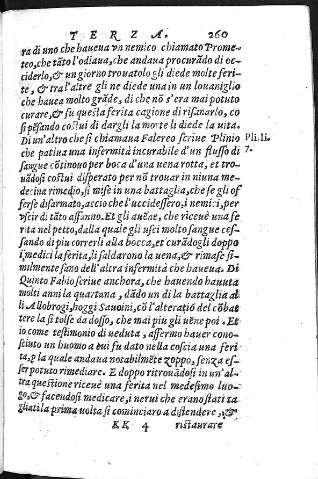 TERZA. 260
ra di uno che haueua vn nemico chiamato Prome-
teo, che tãto l'odiaua, che andaua procurãdo di oc-
ciderlo, & un giorno trouatolo gli diede molte feri-
te, & tra l'altre gli ne diede una in un louaniglio
che haueа molto grãde, di che nõ s'era mai potuto
curare, & fu questa ferita cagione di risanarlo, co
si pẽsando costui di dargli la morte li diede la uita.
Di un'altro che si chiamaua Falereo scriue Plinio Pli.li.
che patiua una infermità incurabile d'un flusso di 7.
sangue cõtinouo per boca d'una uena rotta, et tro-
uãdosi costui disperato per nõ trouar in niuna me-
decina rimedio, si mise in una battaglia, che se gli of
ferse disarmato, accio che l'uccidessero, i nemici, per
vscir di tãto affanno. Et gli auẽne, che riceuè una fe
rita nel petto, dalla quale gli uscì molto sangue ces-
sando di piu correrli alla bocca, et curãdogli doppo
i medici la ferita, li saldarono la uena, & rimase si-
milmente sano dell'altra infermità che haueua. Di
Quinto Fabio scriue anchora, che hauendo hauuta
molti anni la quartana, dãdo un dì la battaglia al
li Allobrogi, hoggi Sauoini, cõ l'alteratiõ del cõbat
tere la si tolse da dosso, che mai piu gli uẽne poi. Et
io come testimonio di ueduta, affermo hauer cono-
sciuto un huomo a cui fu dato nella coscia una feri
ta, p la quale andaua notabilmẽte zoppo, senza es-
ser potuto rimediare. E doppo ritrouãdosi in un'al-
tra questione riceuè una ferita nel medesimo luo-
go, & facendosi medicare, i nerui che erano stati ta
gliati la prima uolta si cominciaro a distendere, &
KK 4 ristaurare